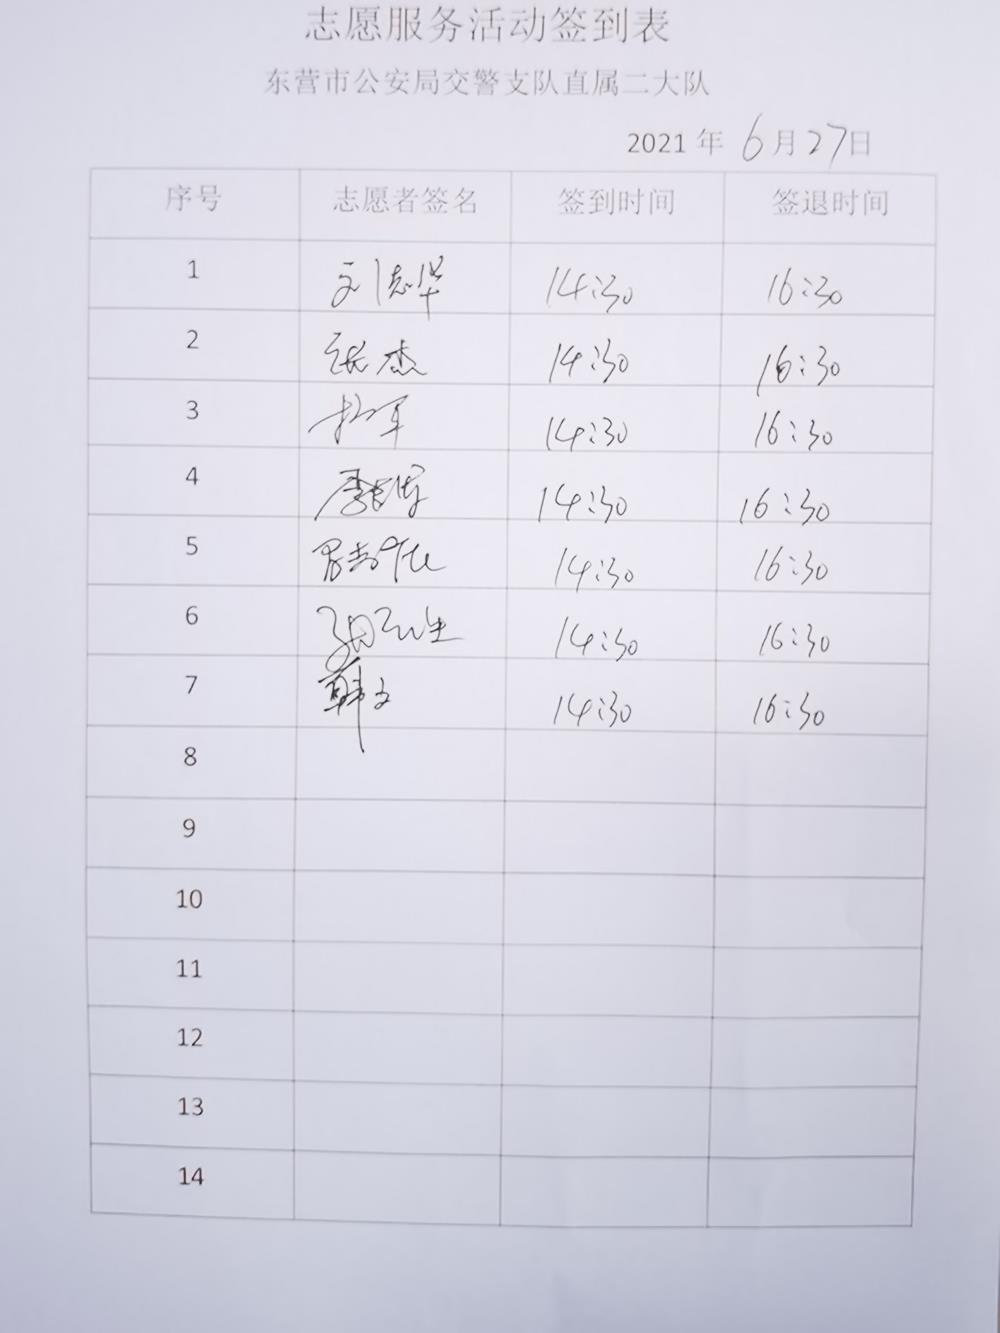 志愿服务活动签到表
东营市公安局交警支队直属二大队
2021 年 6月27日
序号 志愿者签名 签到时间 签退时间
1 刘志华 14:30 16:30
2 张杰 14:30 16:30
3 14:30 16:30
4 14:30 16:30
5 14:30 16:30
6 14:30 16:30
7 韩文 14:30 16:30
8
9
10
11
12
13
14